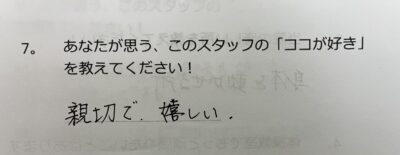 7。 あなたが思う、このスタッフの「ココが好き」
を教えてください！
親切で、嬉しい。